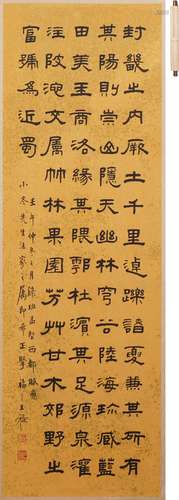 封畿之内厥土千里逴躒諸夏兼其所有
其陽則崇山隱天幽林穹谷陸海珍藏藍
田美玉商洛緣其隈鄠杜濱其足源泉灌
注陂池交屬竹林果園芳艸甘木郊野之
富號爲近蜀
壬午仲冬之月録班孟堅西都賦應
小冬先生法家之屬即希正擘 福厂王禔